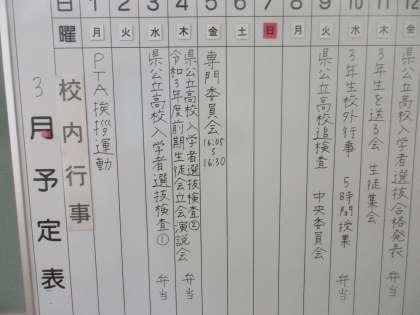 3月予定表
校内行事
日 1 2 3 4 5 6 7 8 9 10 11 12
曜 月 火 水 木 金 土 日 月 火 水 木 金
PTA挨拶運動
県公立高校入学者選抜検査① 弁当
県公立高校入学者選抜検査②
令和3年度前期生徒会立会演説会 弁当
専門委員会 16:05~16:30
県公立高校追検査 中央委員会
3年生校外行事 5時間授業 弁当
3年生を送る会 生徒集会 弁当
県公立高校入学者選抜合格発表